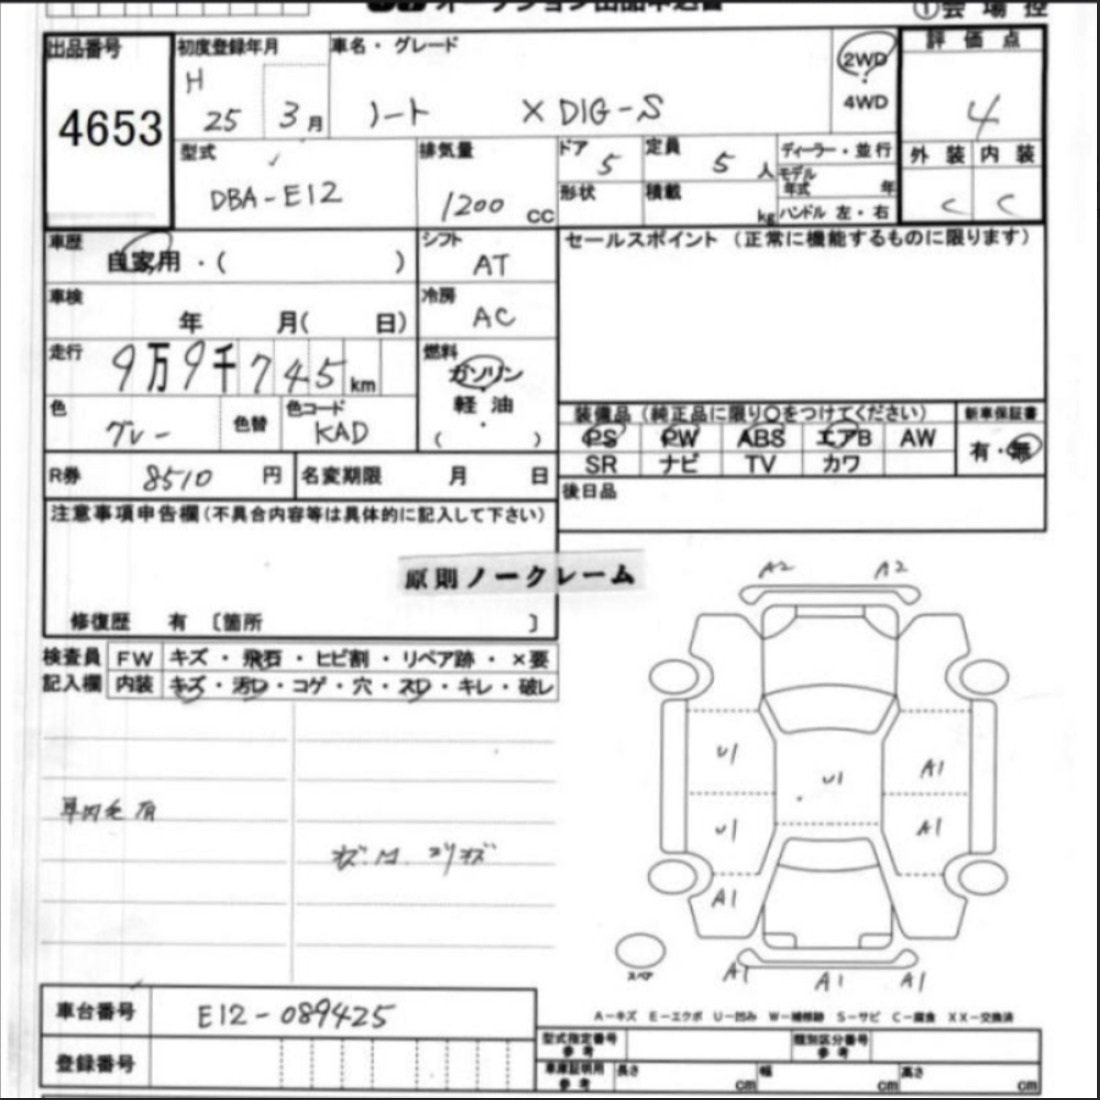 オークション出品申込書
①会場控
出品番号
4653
初度登録年月
H
25 3月
車名・グレード
ノート X DIG-S
2WD
4WD
評価点
4
外装 内装
C C
型式
DBA-E12
排気量
1200 cc
ドア 5
定員 5 人
形状
積載 kg
ディーラー・並行
モデル年式 年
ハンドル 左・右
車歴
自家用・( )
シフト
AT
セールスポイント (正常に機能するものに限ります)
車検
年 月( 日)
冷房
AC
走行
9万9千745km
燃料
ガソリン
軽油
( )
色
グレー
色替
色コード
KAD
装備品 (純正品に限り○をつけてください)
新車保証書
PS PW ABS エアB AW
有・無
SR ナビ TV カワ
R券 8510 円
名変期限 月 日
後日品
注意事項申告欄(不具合内容等は具体的に記入して下さい)
原則ノークレーム
修復歴 有 〔箇所 〕
検査員
記入欄
FW キズ・飛石・ヒビ割・リペア跡・×要
内装 キズ・汚D・コゲ・穴・スD・キレ・破レ
車内毛有
A2 A2
U1 U1 A1
U1 A1
A1
スペア
A1 A1 A1
A−キズ E−エクボ U−凹み W−補修跡 S−サビ C−腐食 XX−交換済
車台番号 E12-089425
登録番号
型式指定番号
参考
類別区分番号
参考
車庫証明用
参考
長さ cm 幅 cm 高さ cm